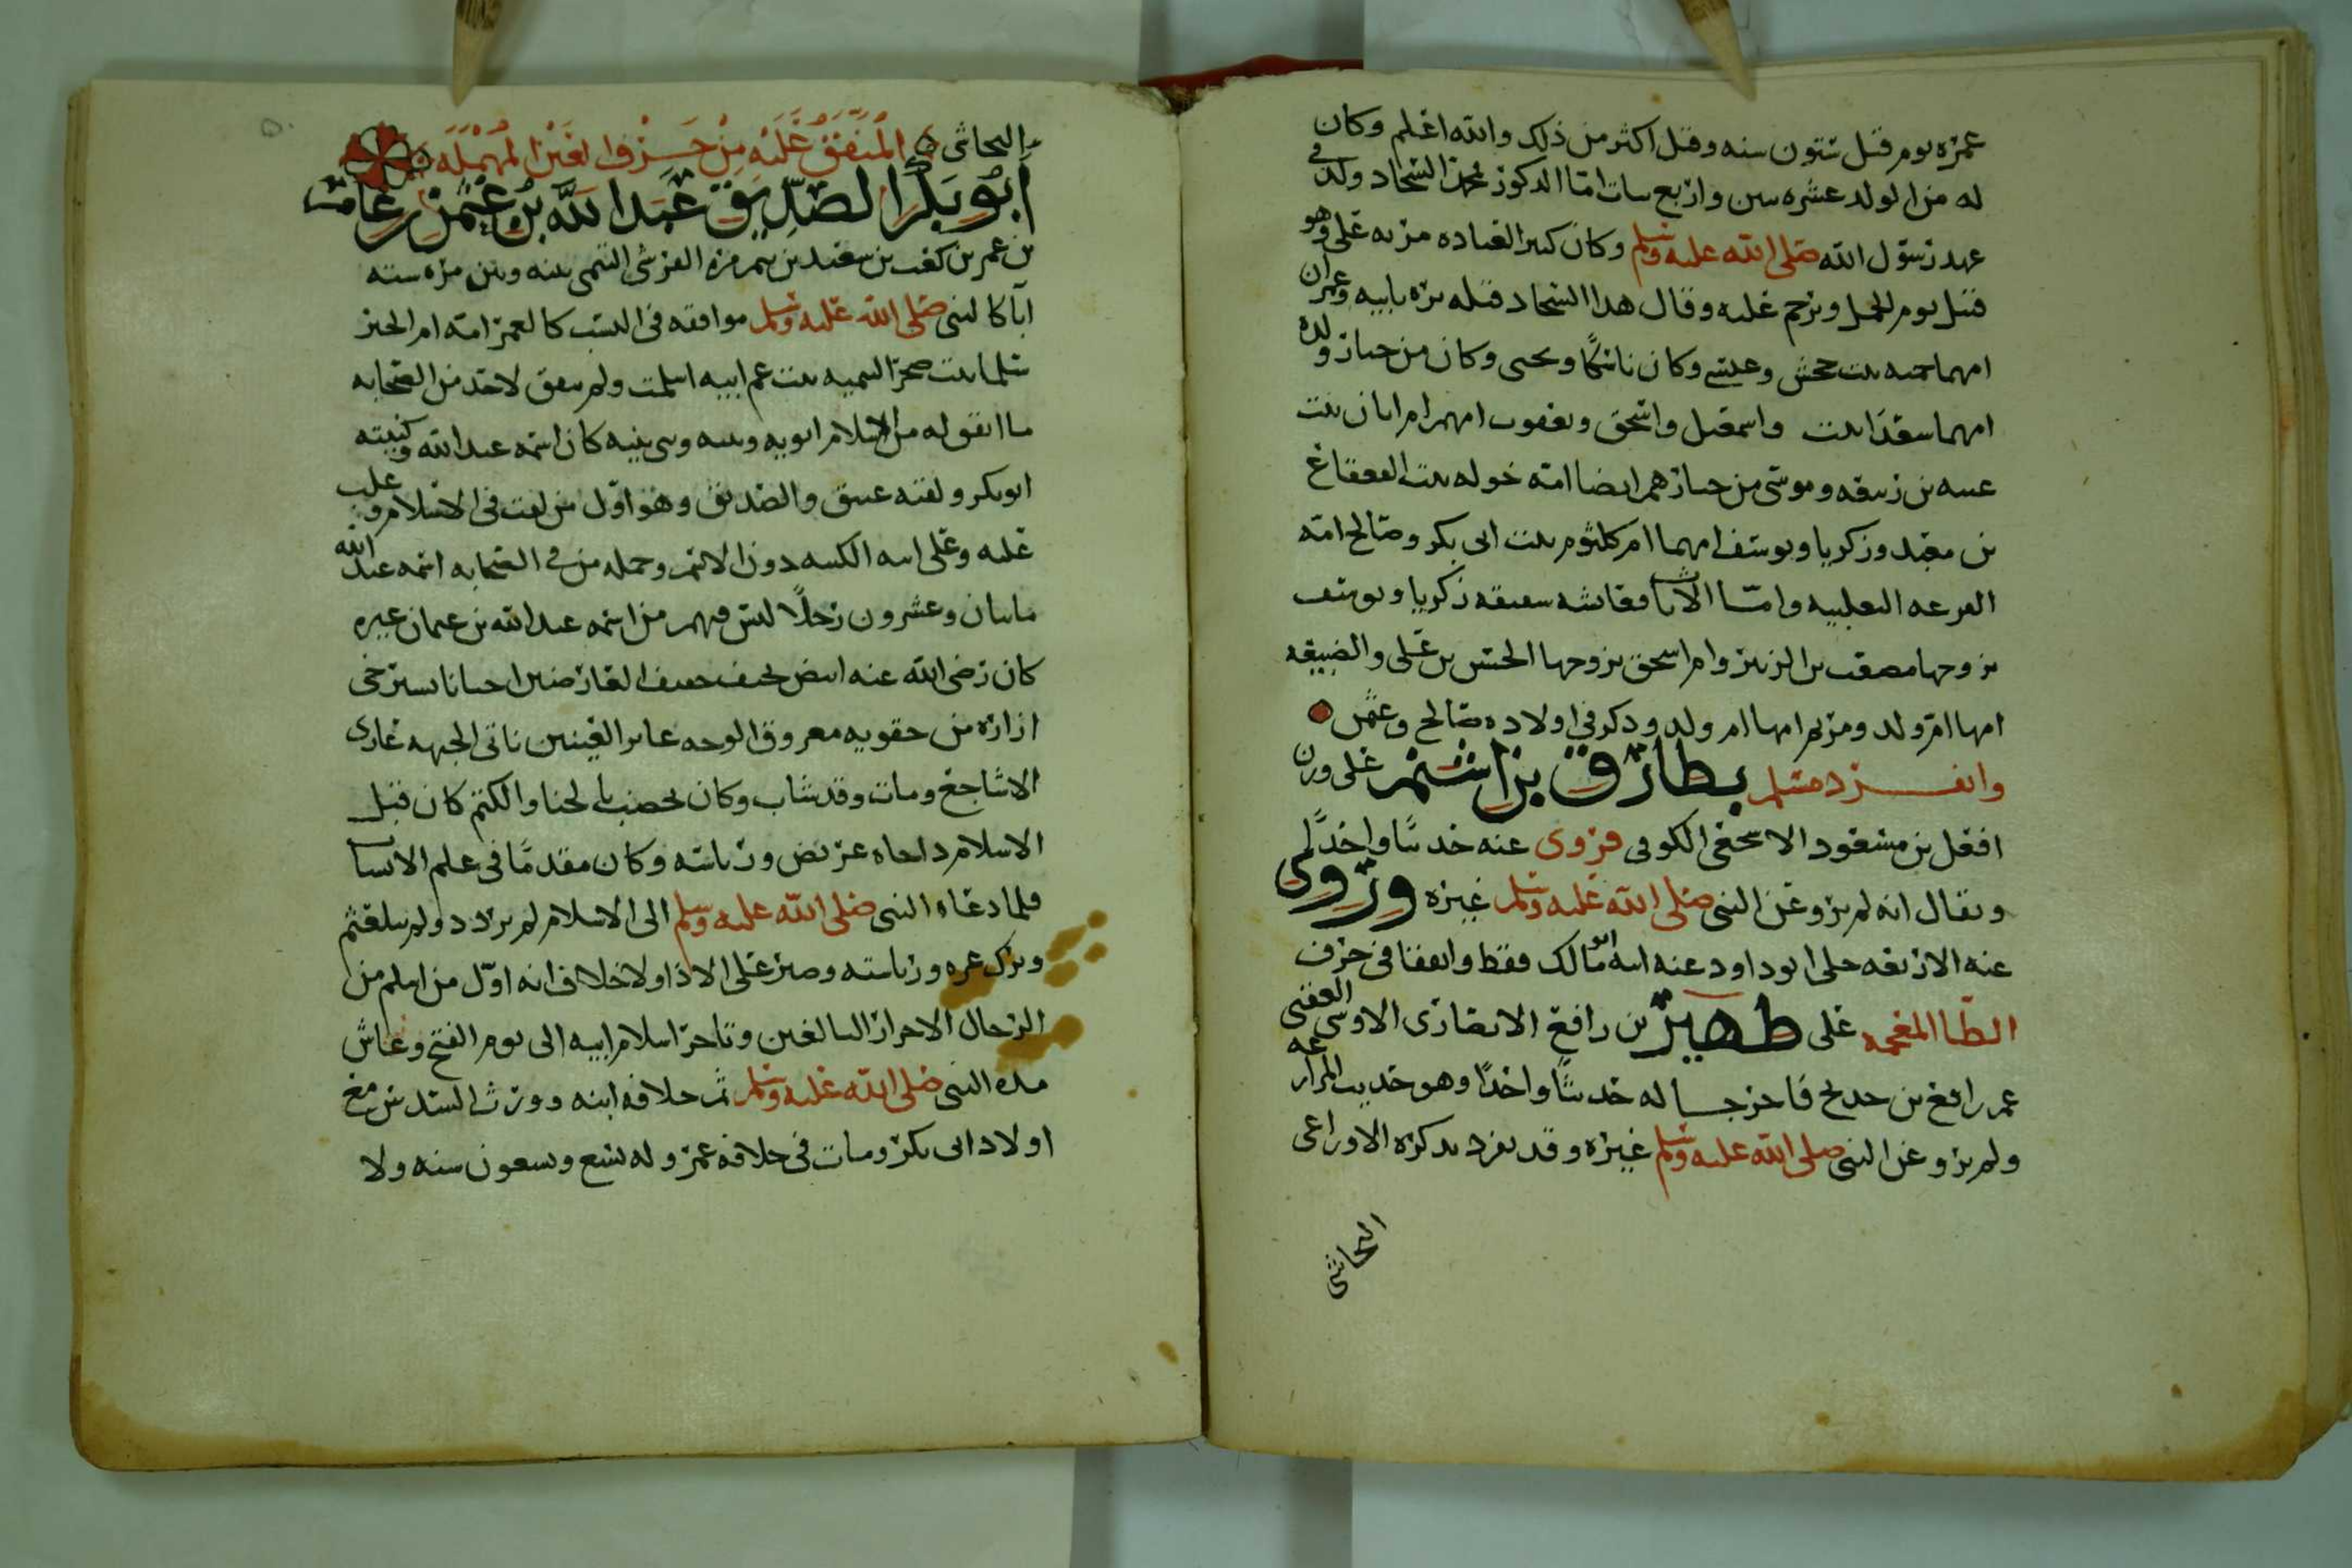 عمره يوم قتل ستون سنه وقيل اكثر من ذلك والله اعلم وكان
له من الولد عشره بنين واربع بنات اما الذكور محمد السجاد ولد في
عهد رسول الله صلى الله عليه وسلم وكان كثير العباده مر به علي وهو
قتيل يوم الجمل وترحم عليه وقال هذا السجاد قتله بره بابيه وعمران
امهما حمنه بنت جحش وعيسى وكان ناسكا ويحيى وكان من خيار ولده
امهما سعدا بنت واسمعيل واسحق ويعقوب امهم ام ابان بنت
عتبه بن ربيعه وموسى من خيارهم ايضا امه خوله بنت القعقاع
بن معبد وزكريا ويوسف امهما ام كلثوم بنت ابي بكر وصالح امه
الفرعه التغلبيه واما الاناث فعايشه شقيقه زكريا ويوسف
تزوجها مصعب بن الزبير وام اسحق تزوجها الحسن بن علي والصعبه
امها ام ولد ومريم امها ام ولد وذكر في اولاده صالح وعثمن
وانفرد مسلم بطارق بن اشيم على وزن
افعل بن مسعود الاشجعي الكوفي فروى عنه حديثا واحدا
ويقال انه لم يرو عن النبي صلى الله عليه وسلم غيره وروى
عنه الاربعه خلى ابو داود عنه ابنه ابو مالك فقط واتفقا في حرف
الظا المعجمه على ظهير بن رافع الانصاري الاوسي
عم رافع بن خديج فاخرجا له حديثا واحدا وهو حديث المزارعه
ولم يرو عن النبي صلى الله عليه وسلم غيره وقد تفرد بذكره الاوزاعي
النجاشي
النجاشي المتفق عليه من حرف العين المهمله
ابو بكر الصديق عبد الله بن عثمن بن عامر
بن عمر بن كعب بن سعد بن تيم بن مره القرشي التيمي بينه وبين مره سته
آبا كالنبي صلى الله عليه وسلم موافقه في النسب كالعمر امه ام الخير
سلما بنت صخر التيميه بنت عم ابيه اسلمت ولم يتفق لاحد من الصحابه
ما اتفق له من اسلام ابويه وبنيه وبني بنيه كان اسمه عبد الله وكنيته
ابو بكر ولقبه عتيق والصديق وهو اول من لقب في الاسلام وغلب
عليه وعلى ابيه الكنيه دون الاسم وجمله من في الصحابه اسمه عبد الله
مايتان وعشرون رجلا ليس فيهم من اسمه عبد الله بن عثمان غيره
كان رضي الله عنه ابيض نحيف خفيف العارضين احيانا يسترخي
ازاره من حقويه معروق الوجه غاير العينين ناتي الجبهه عاري
الاشاجع ومات وقد شاب وكان يخضب بالحنا والكتم كان قبل
الاسلام ذا جاه عريض ورياسه وكان مقدما في علم الانساب
فلما دعاه النبي صلى الله عليه وسلم الى الاسلام لم يتردد ولم يتلعثم
وترك عزه ورياسته وصبر على الاذا ولا خلاف انه اول من اسلم من
الرجال الاحرار البالغين وتاخر اسلام ابيه الى يوم الفتح وعاش
مده النبي صلى الله عليه وسلم ثم خلافه ابنه وورث السدس مع
اولاد ابي بكر ومات في خلافه عمر وله سبع وتسعون سنه ولا